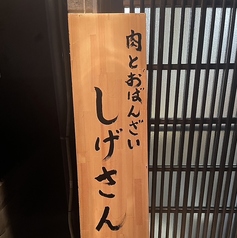 肉とおばんざい
しげさん